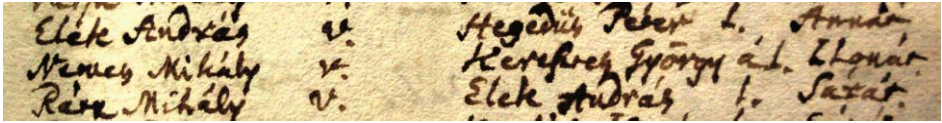 Elek András v. Hegedüs Péter l. Annát
Nemes Mihály v. Keresztes György á l. Ilonát
Rátz Mihály v. Elek András l. Sárát.